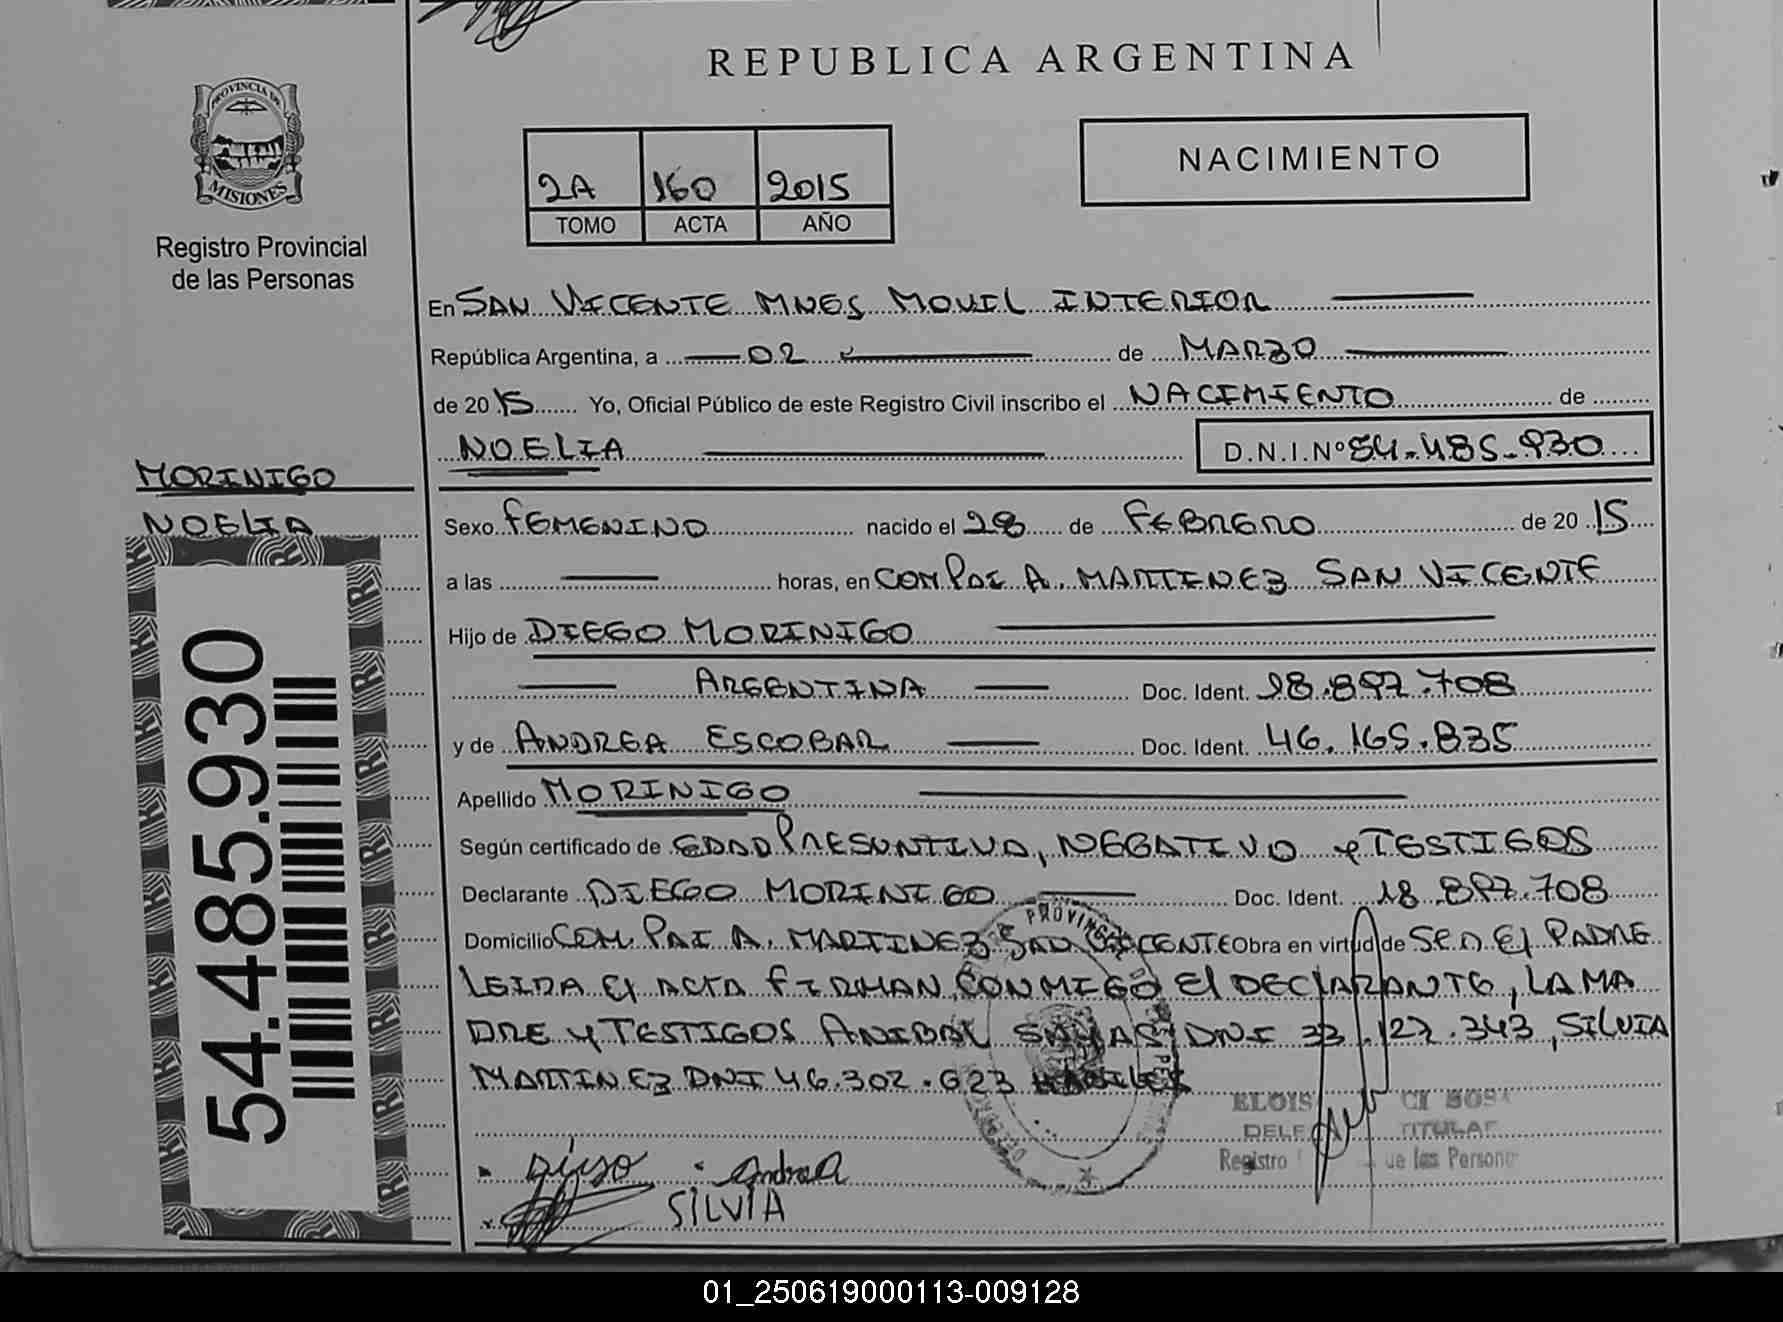 REPUBLICA ARGENTINA
PROVINCIA DE
MISIONES
Registro Provincial
de las Personas
2A 160 2015
TOMO ACTA AÑO
NACIMIENTO
En SAN VICENTE MNES MOVIL INTERIOR
República Argentina, a 02 de MARZO
de 2015 Yo, Oficial Público de este Registro Civil inscribo el NACIMIENTO de
NOELIA D.N.I.Nº 54.485.930
MORINIGO
NOELIA
Sexo FEMENINO nacido el 28 de FEBRERO de 2015
a las horas, en COM PAI A. MARTINEZ SAN VICENTE
Hijo de DIEGO MORINIGO
ARGENTINA Doc. Ident. 18.897.708
y de ANDREA ESCOBAR Doc. Ident. 46.165.835
Apellido MORINIGO
Según certificado de EDAD PRESUNTIVA, NEGATIVO Y TESTIGOS
Declarante DIEGO MORINIGO Doc. Ident. 18.897.708
Domicilio COM. PAI A. MARTINEZ SAN VICENTE Obra en virtud de SER El PADRE
LEIDA El ACTA FIRMAN CONMIGO El DEClARANTE, LA MA
DRE Y TESTIGOS ANIBAL DNI 33.127.343, SILVIA
MARTINEZ DNI 46.302.623
54.485.930
PROVINC
ELOIS
DELE TITULAR
Registro de las Person
Diego Andrea
SILVIA
01_250619000113-009128